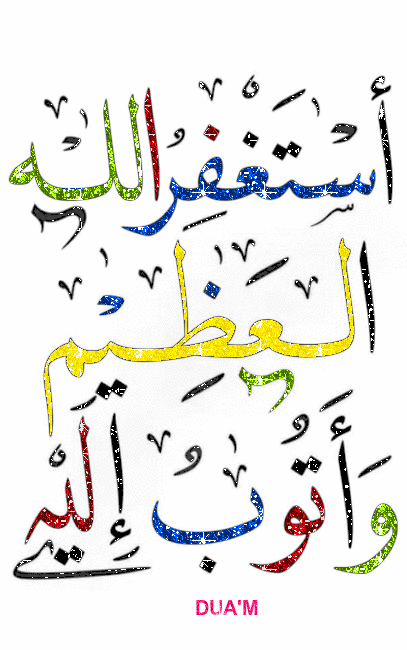 أستغفر الله
العظيم
وأتوب إليه
DUA'M